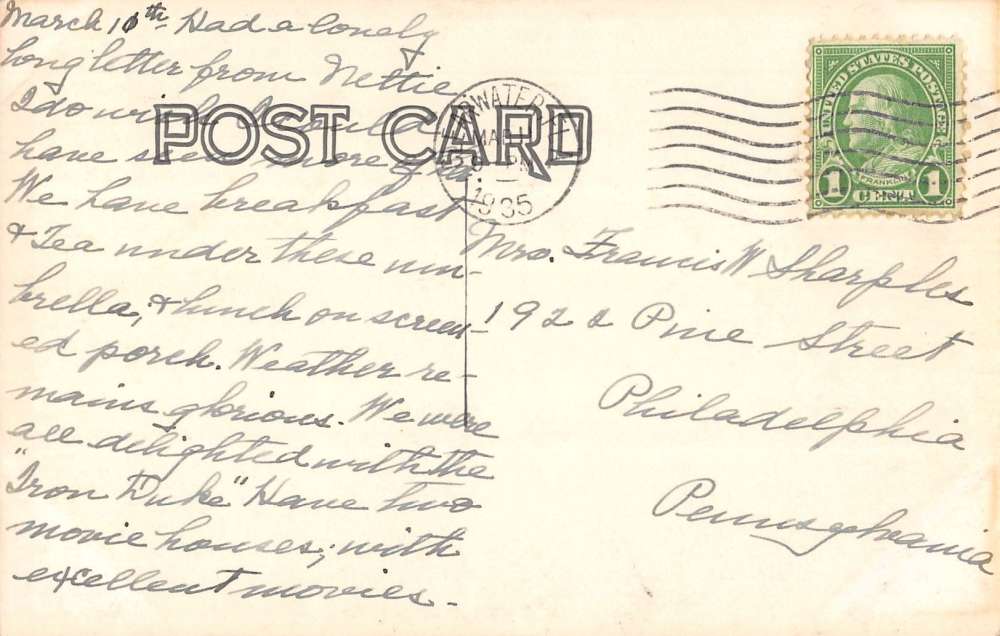 March 11th Had a lonely
long letter from Nettie
I do wish I could
have seen more of her
We have breakfast
& Tea under these um-
brella, & lunch on screen-
ed porch. Weather re-
mains glorious. We were
all delighted with the
"Iron Duke" Have two
movie houses, with
excellent movies.
POST CARD
CLEARWATER
MAR 11
PM
1935
UNITED STATES POSTAGE
FRANKLIN
1 CENT 1
Mrs. Francis W Sharples
1922 Pine Street
Philadelphia
Pennsylvania